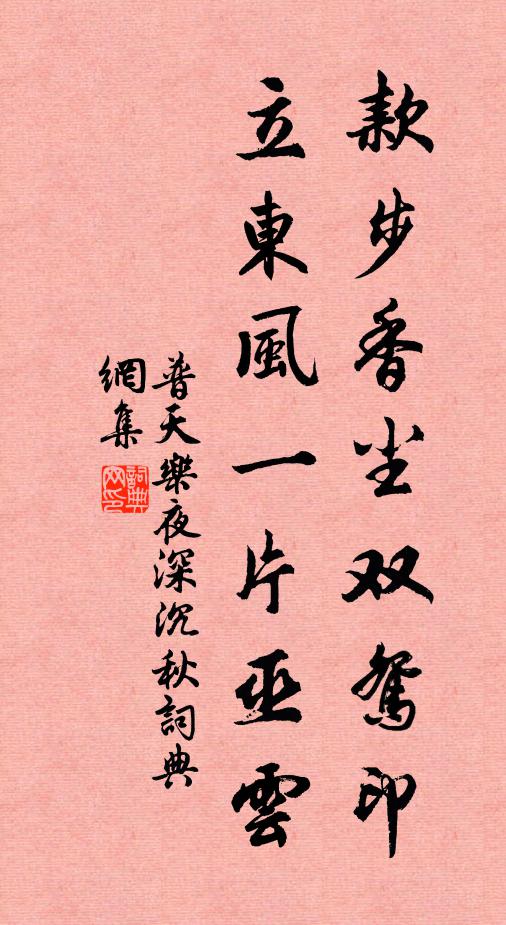 款步香尘双鸳印
立東風一片巫雲
普天樂夜深沉秋詞典
網集
詞典
网印